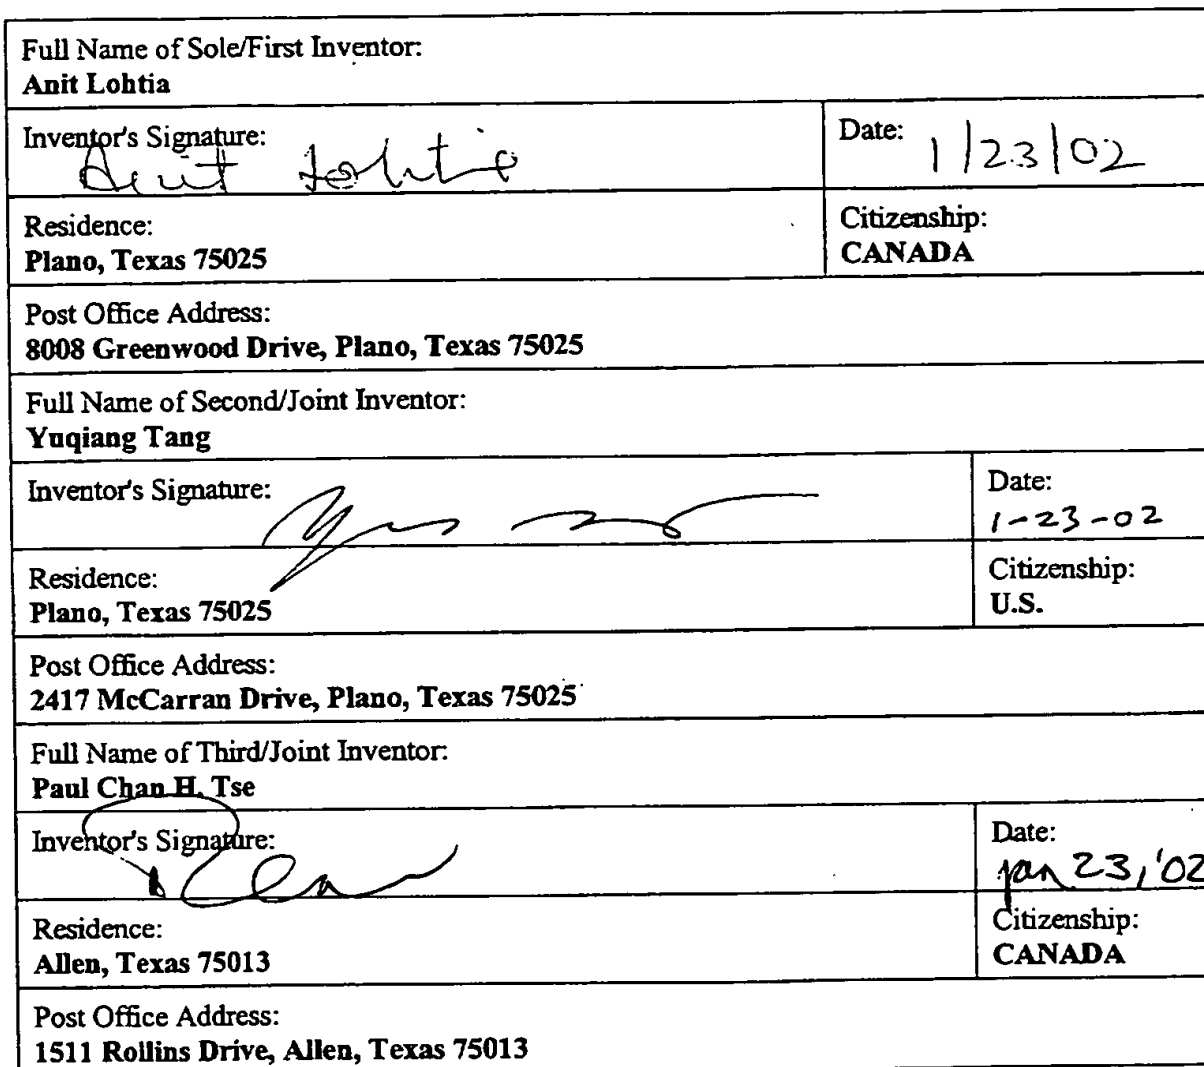 Full Name of Sole/First Inventor:
Anit Lohtia
Inventor's Signature: Anit Lohtia
Date: 1/23/02
Residence:
Plano, Texas 75025
Citizenship:
CANADA
Post Office Address:
8008 Greenwood Drive, Plano, Texas 75025
Full Name of Second/Joint Inventor:
Yuqiang Tang
Inventor's Signature:
Date:
1-23-02
Residence:
Plano, Texas 75025
Citizenship:
U.S.
Post Office Address:
2417 McCarran Drive, Plano, Texas 75025
Full Name of Third/Joint Inventor:
Paul Chan H. Tse
Inventor's Signature:
Date:
Jan 23, '02
Residence:
Allen, Texas 75013
Citizenship:
CANADA
Post Office Address:
1511 Rollins Drive, Allen, Texas 75013